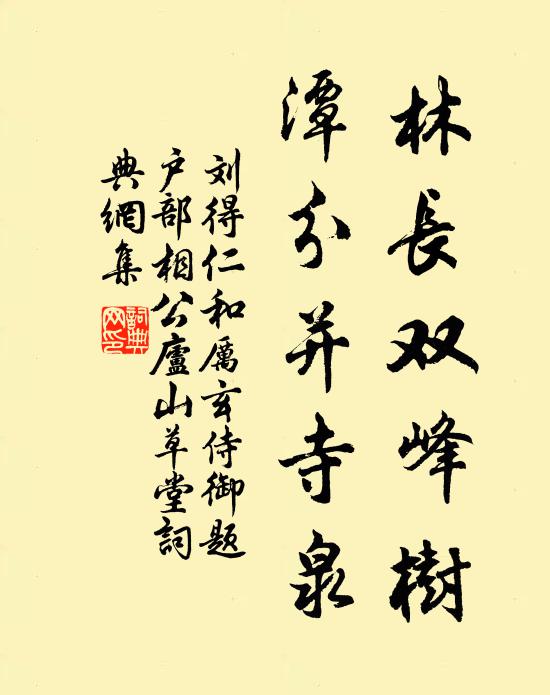 林長双峰樹
潭分并寺泉
刘得仁和厲玄侍御题
户部相公廬山草堂詞
典網集
詞典网印